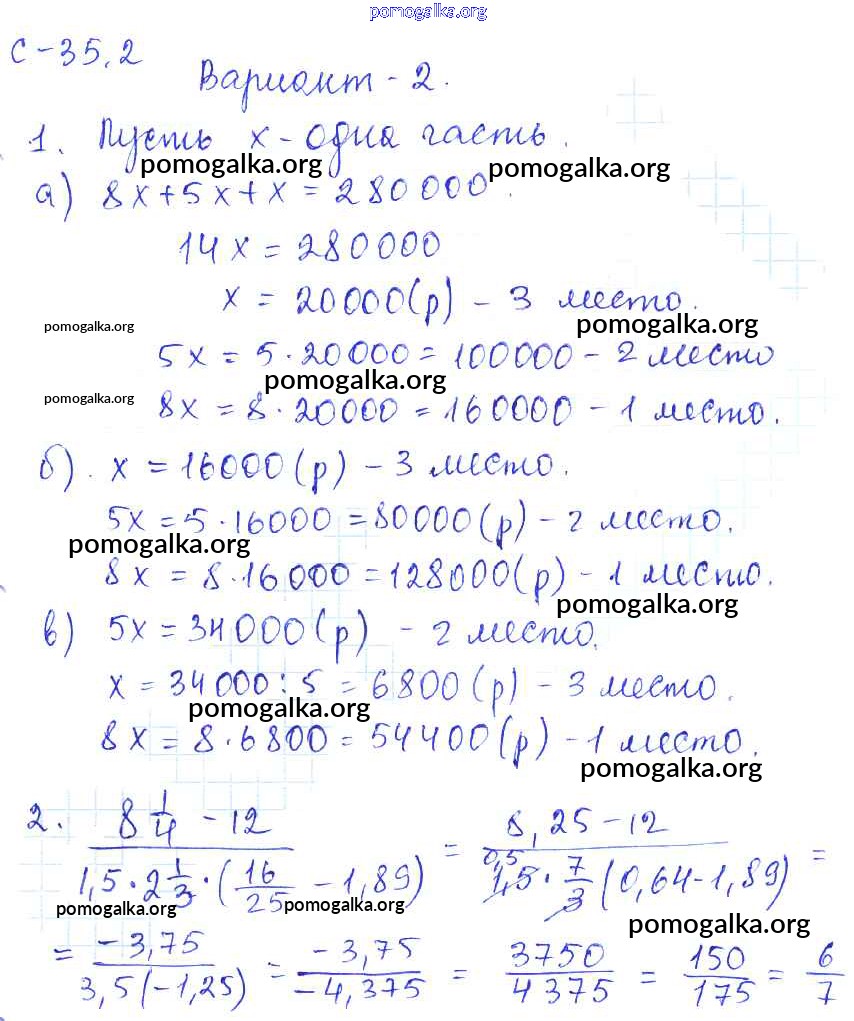 pomogalka.org
С-35,2
Вариант-2.
1. Пусть x - одна часть.
pomogalka.org pomogalka.org
а) 8x+5x+x=280000.
14x=280000
x = 20000(р) - 3 место.
pomogalka.org pomogalka.org
5x = 5·20000=100000-2 место
pomogalka.org pomogalka.org
8x = 8·20000=160000-1 место.
б). x=16000(р)-3 место.
5x=5·16000=80000(р)-2 место.
pomogalka.org
8x = 8·16000=128000(р)-1 место.
pomogalka.org
в) 5x=34000(р) - 2 место.
x = 34000:5 = 6800(р)-3 место.
pomogalka.org
8x = 8·6800=54400(р)-1 место.
pomogalka.org
2. (8 1/4 - 12)/(1,5·2 1/3·(16/25 - 1,89)) = (8,25-12)/(0,5 1,5·7/3(0,64-1,89)) =
pomogalka.org pomogalka.org
pomogalka.org
= -3,75/3,5(-1,25) = -3,75/-4,375 = 3750/4375 = 150/175 = 6/7